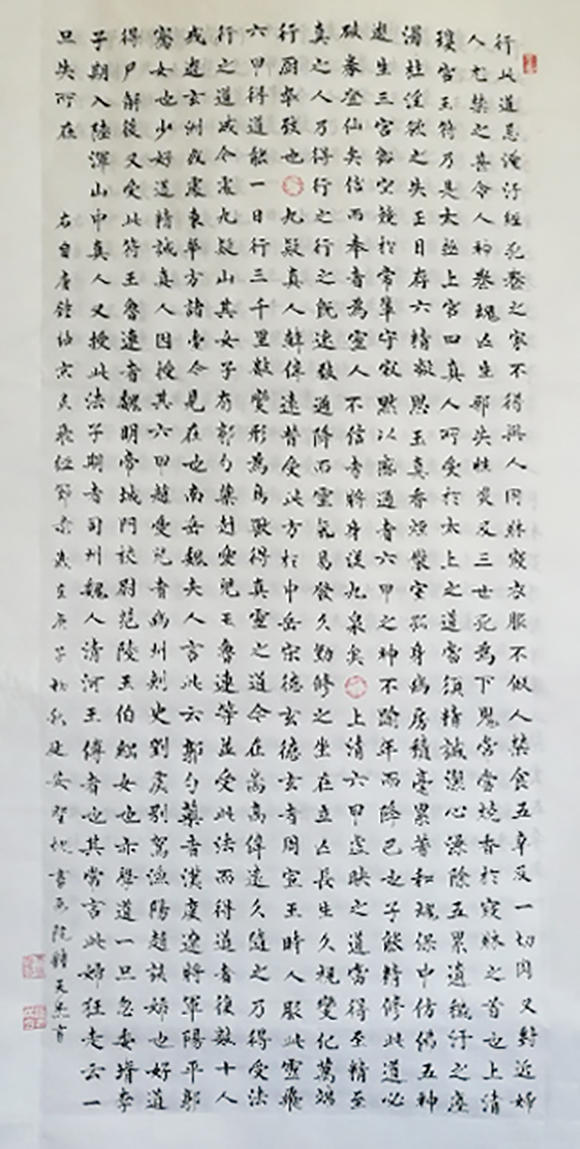 行此道忌淹汙經死喪之家不得與人同牀寢衣服不假人禁食五辛及一切肉又對近婦
人尤禁之甚令人神喪魂亡生邪失性災及三世死為下鬼常當燒香於寢牀之首也上清
瓊宮玉符乃是太極上宮四真人所受於太上之道當須精誠潔心澡除五累遺穢汙之塵
濁杜淫欲之失正目存六精凝思玉真香煙散室孤身幽房積毫累著和魂保中仿佛五神
遊生三宮豁空競於常輩守寂默以感通者六甲之神不踰年而降已也子能精修此道必
破券登仙矣信而奉者為靈人不信者將身沒九泉矣 上清六甲虛映之道當得至精至
真之人乃得行之行之既速致通降而靈氣易發久勤修之坐在立亡長生久視變化萬端
行廚卒致也 九疑真人韓偉遠昔受此方於中岳宋德玄德玄者周宣王時人服此靈飛
六甲得道能一日行三千里數變形為鳥獸得真靈之道今在嵩高偉遠久隨之乃得受法
行之道成今處九疑山其女子有郭勺藥趙愛兒王魯連等並受此法而得道者復數十人
或遊玄洲或處東華方諸臺今見在也南岳魏夫人言此云郭勺藥者漢度遼將軍陽平郭
騫女也少好道精誠真人因授其六甲趙愛兒者幽州刺史劉虞別駕漁陽趙該婦也好道
得尸解後又受此符王魯連者魏明帝城門校尉范陵王伯綱女也亦學道一旦忽委婿李
子期入陸渾山中真人又授此法子期者司州魏人清河王傳者也其常言此婦狂走云一
旦失所在
右自唐鍾紹京靈飛經節錄歲在庚子初秋延安書畫院韓天書